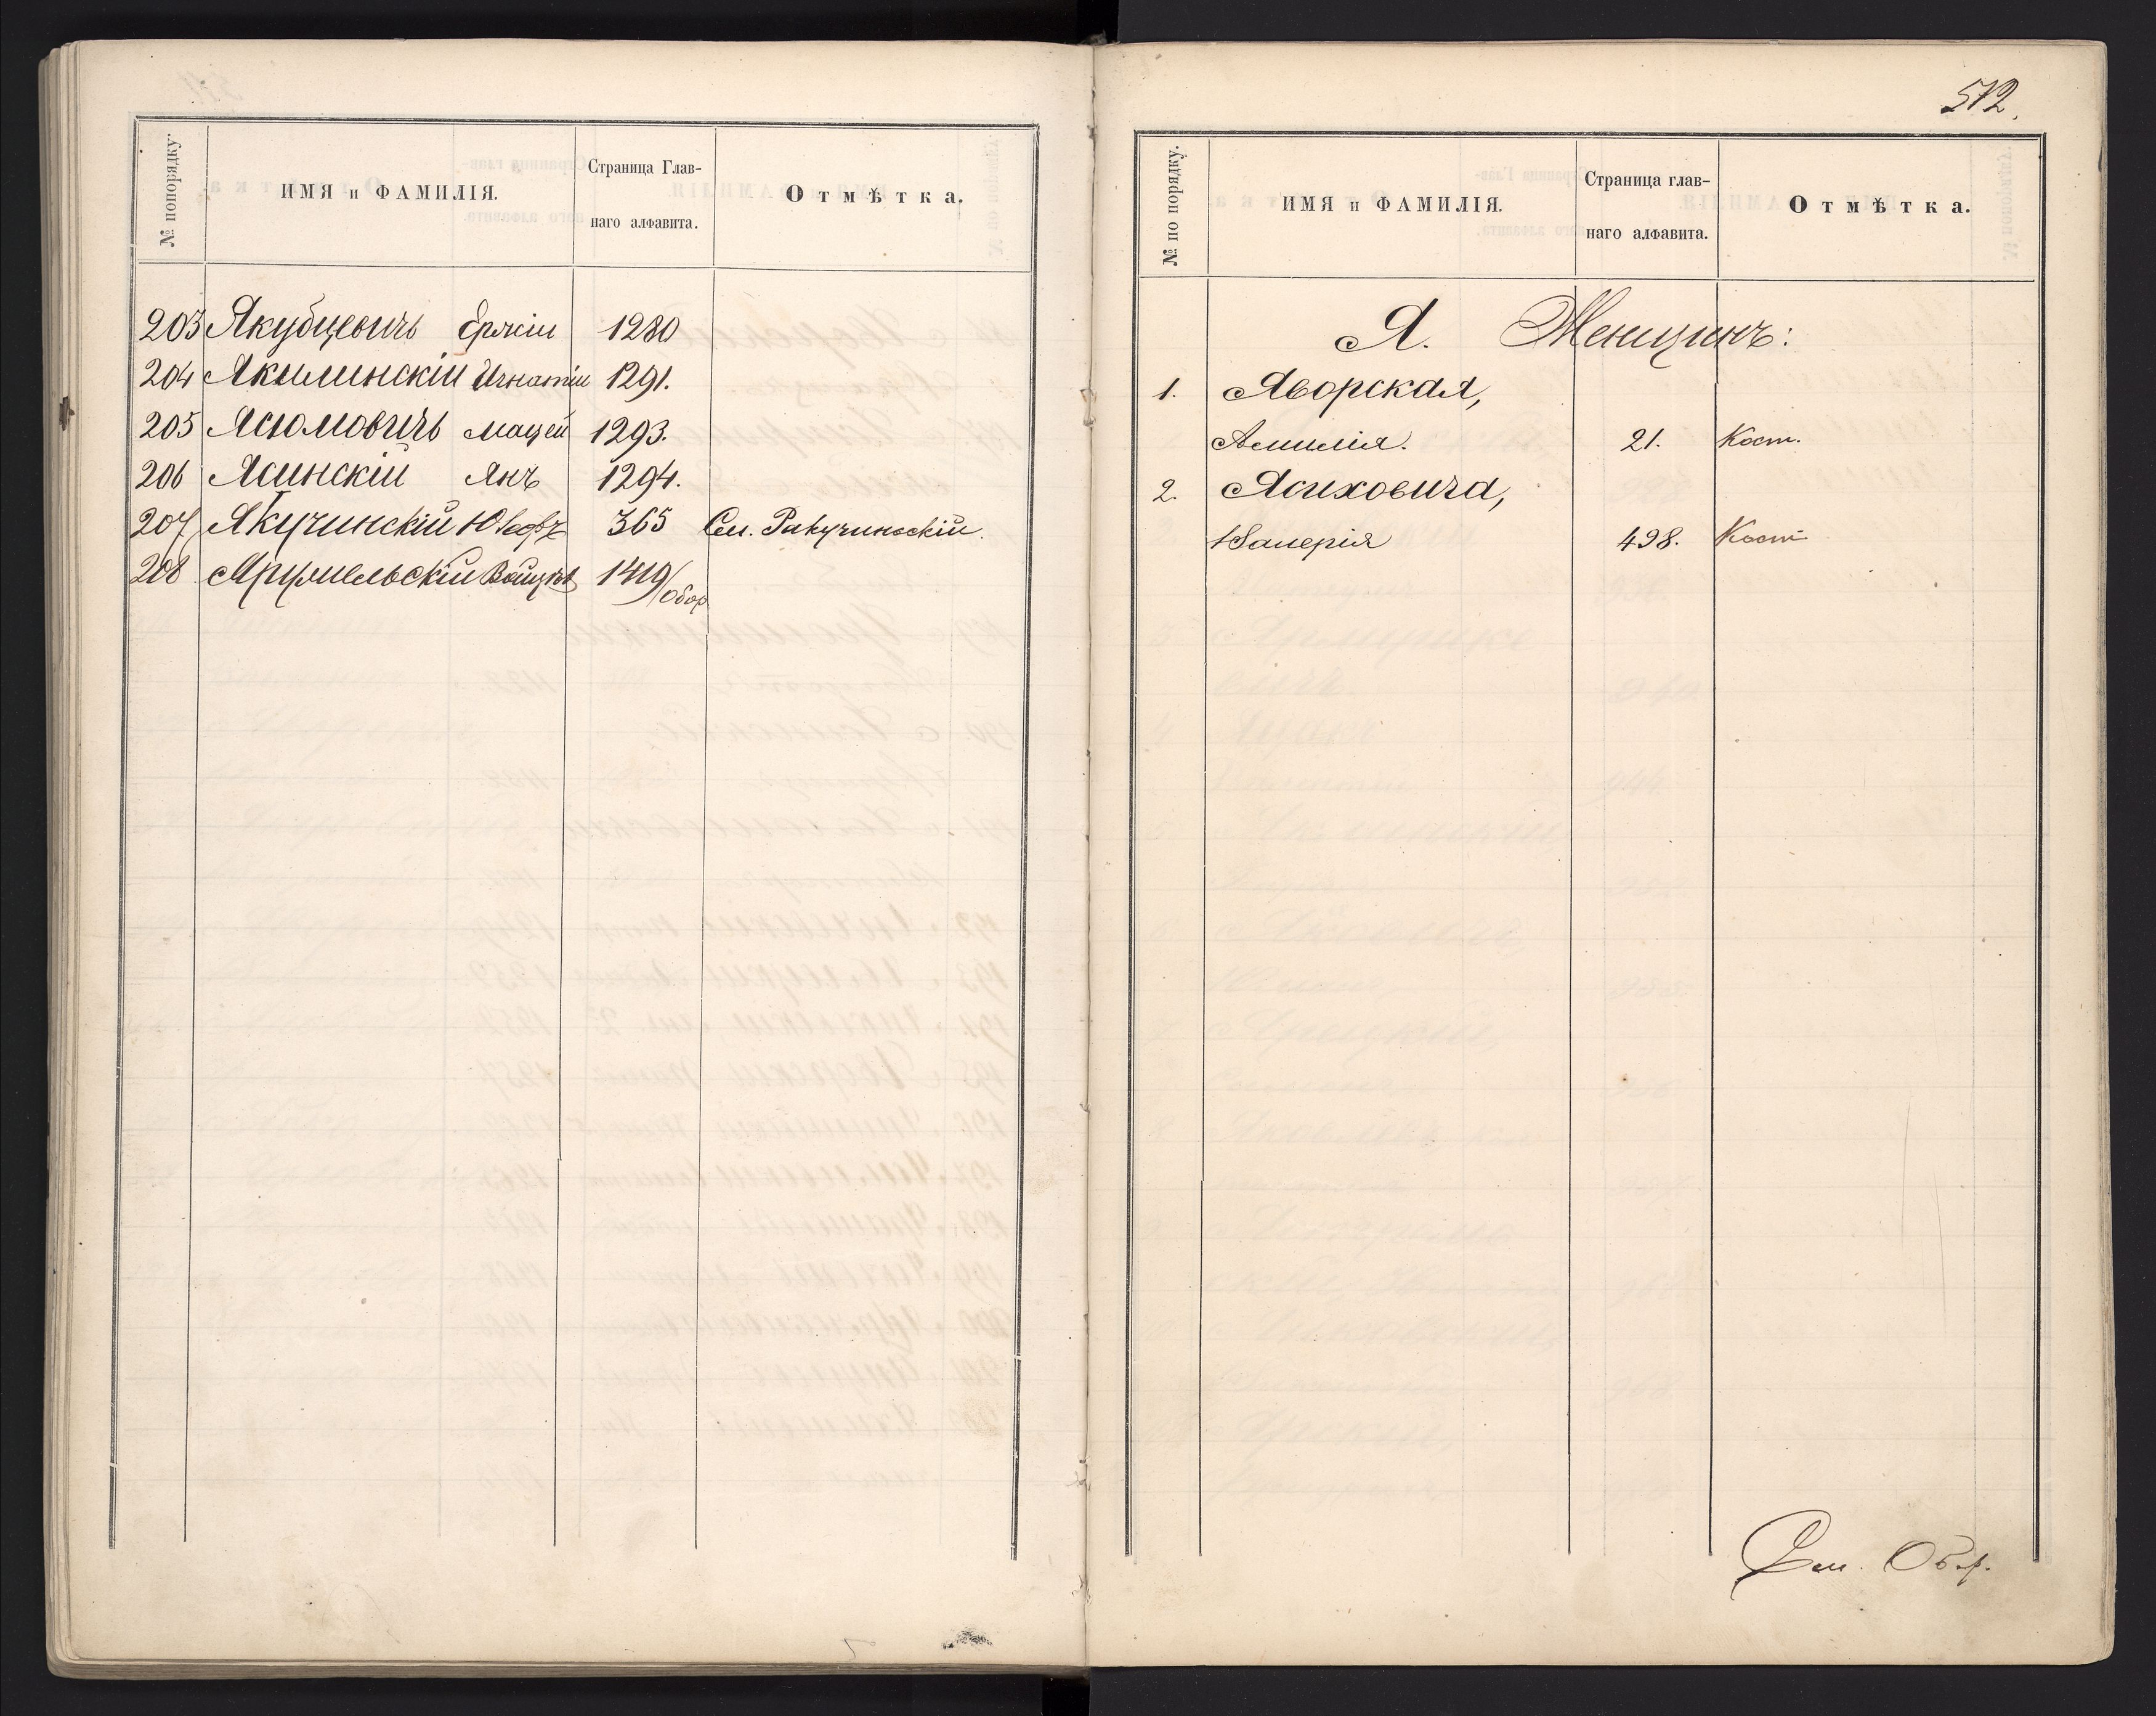 № попорядку.
ИМЯ и ФАМИЛІЯ.
Страница Глав-
наго алфавита.
Отмѣтка.
203 Якубцевичъ 1280
204 Акилинскій Игнатій 1291.
205 Ясюмовичъ Мацей 1293.
206 Ясинскій Янъ 1294.
207 Якучинскій Юзефъ 365 См. Ракучинскій.
208 1419/обор
512.
№ по порядку.
ИМЯ и ФАМИЛІЯ.
Страница глав-
наго алфавита.
Отмѣтка.
Я. Женщинъ:
1. Яворская,
Эмилія. 21. Кост.
2. Ясиховича,
Валерія 498. Кост
См. Об.